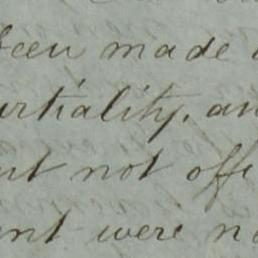 been made
artiality, an
ut not offe
ent were no